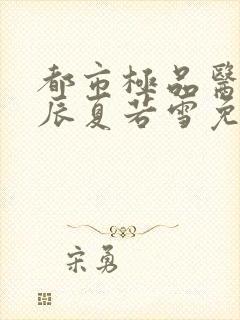 都市極品醫
辰夏若雪免
宋勇